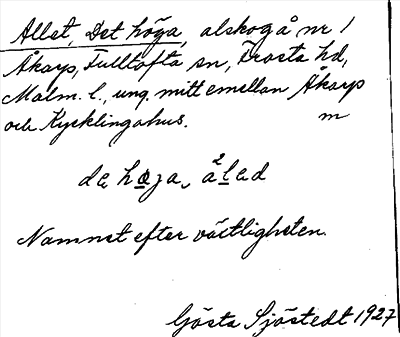 Allet, Det höga, alskog å nr 1
Åkarp, Fulltofta sn, Frosta hd,
Malm. l., ung. mitt emellan Åkarp
och Kycklingahus. m
de høja, ålad
Namnet efter växtligheten.
Gösta Sjöstedt 1927